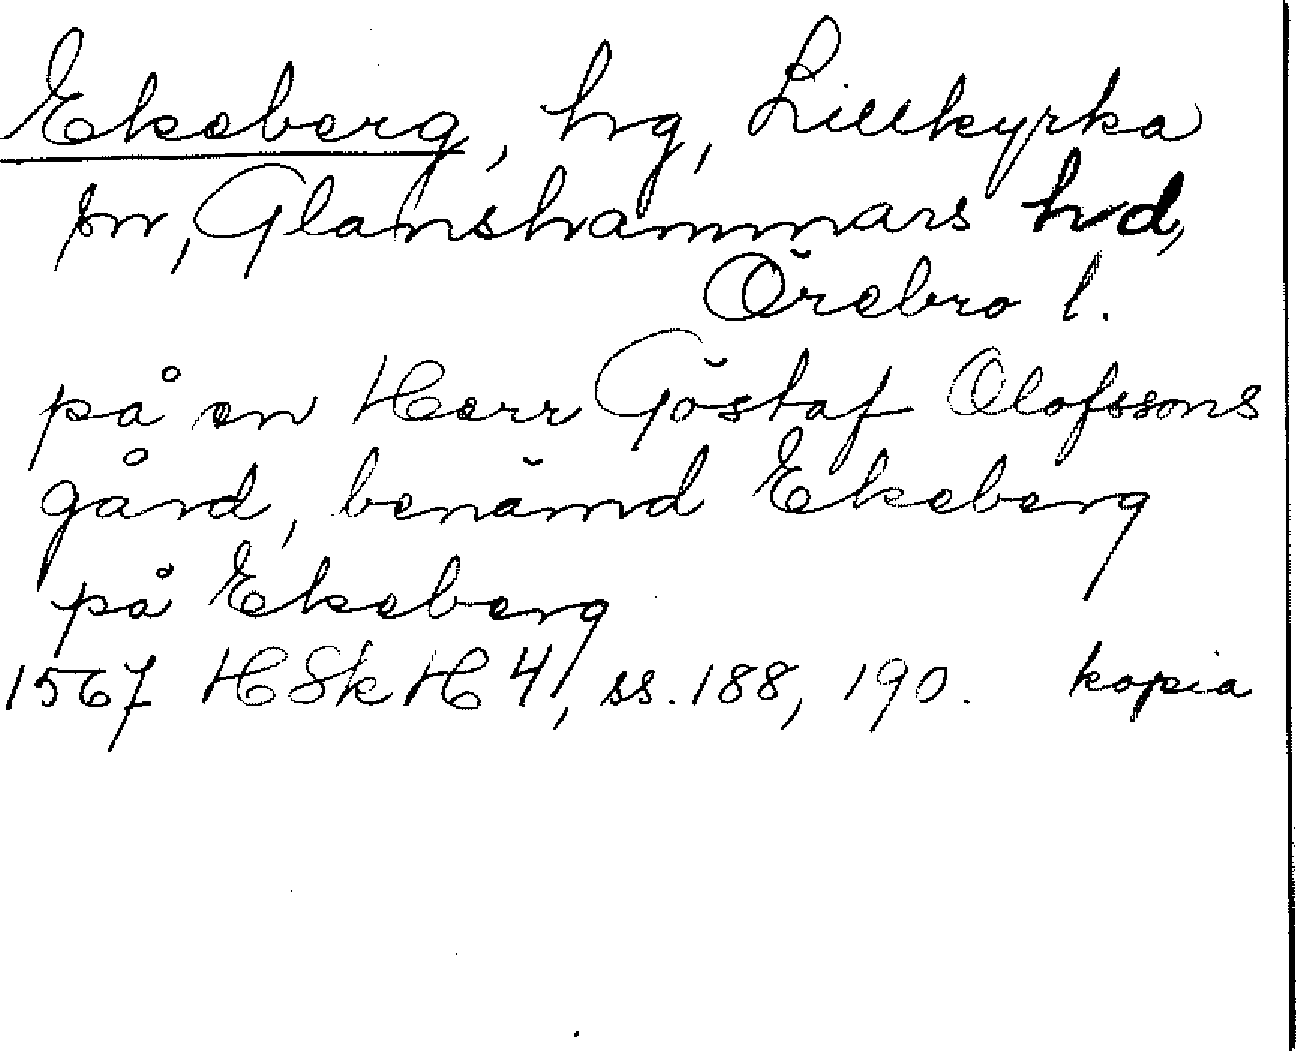 Ekeberg, hg, Lillkyrka
sn, Glanshammars hd,
Örebro l.
på en Herr Göstaf Olofssons
gård, benämd Ekeberg
på Ekeberg
1567 HSk H 4, ss. 188, 190. kopia